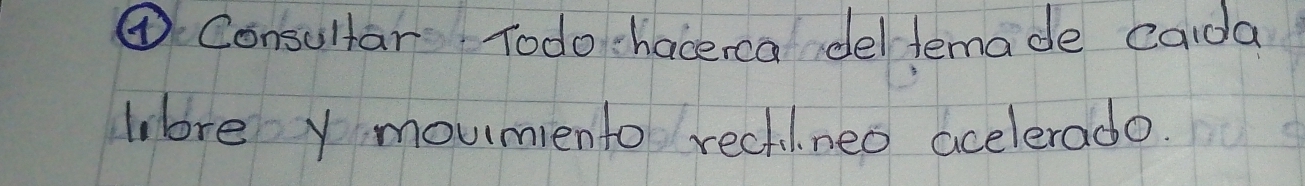 ① Consultar. Todo hacerca del tema de caida
libre y movimiento rectilineo acelerado.